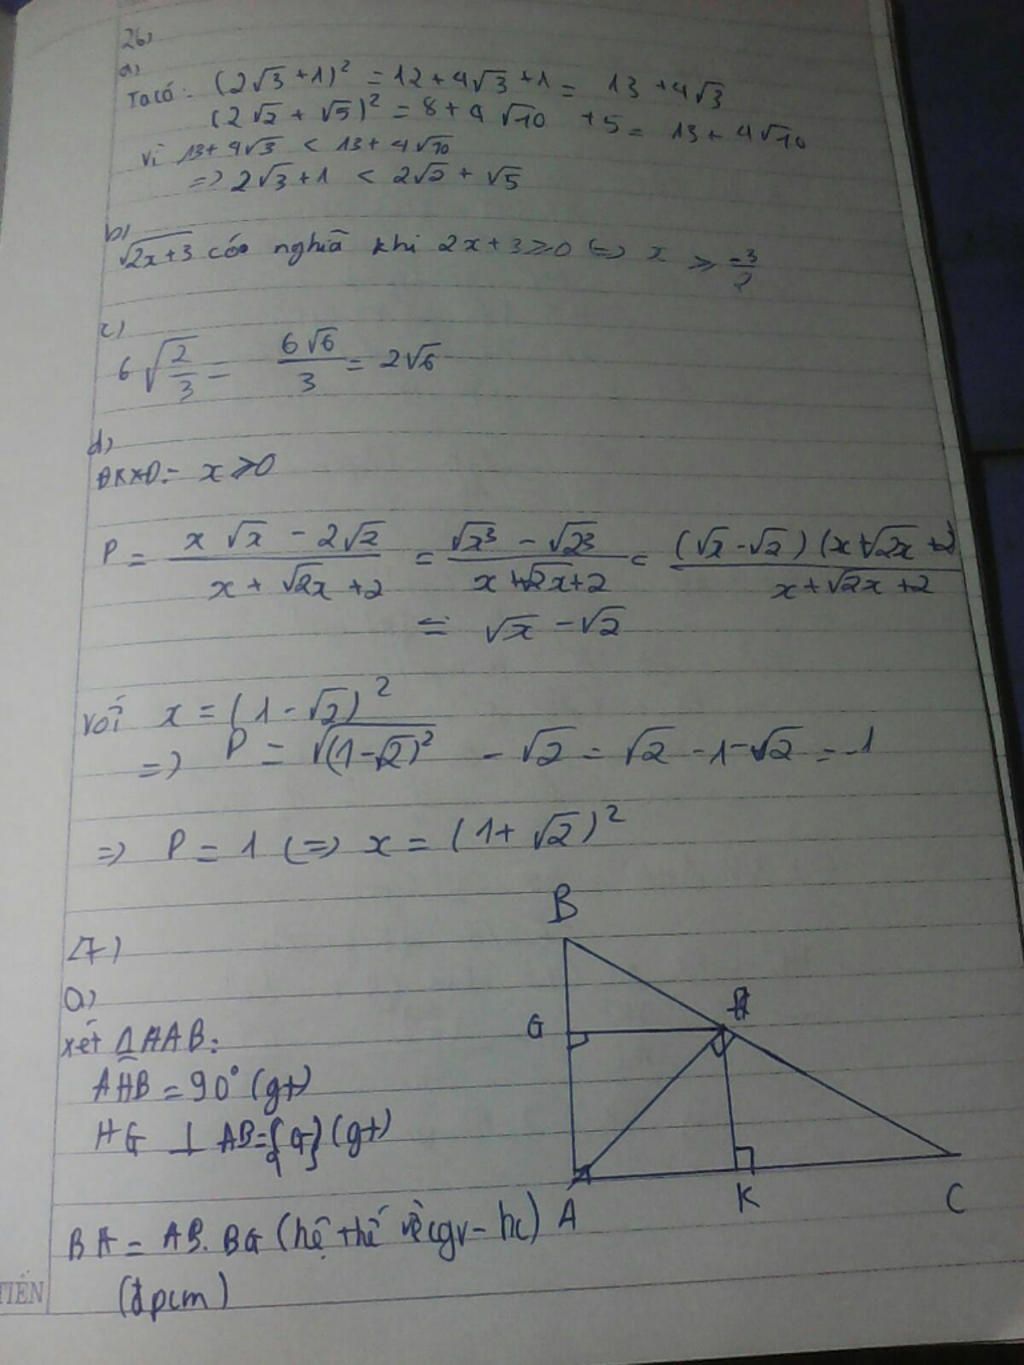 26)
a)
Ta có: (2√3 + 1)² = 12 + 4√3 + 1 = 13 + 4√3
(2√2 + √5)² = 8 + 4√10 + 5 = 13 + 4√10
Vì 13 + 4√3 < 13 + 4√10
=> 2√3 + 1 < 2√2 + √5
b)
√(2x+3) có nghĩa khi 2x + 3 ≥ 0 <=> x ≥ -3/2
c)
6√(2/3) = 6√6/3 = 2√6
d)
ĐKXĐ: x ≥ 0
P = (x√x - 2√2)/(x + √2x + 2) = (√x³ - √2³)/(x + √2x + 2) = (√x - √2)(x + √2x + 2)/(x + √2x + 2)
= √x - √2
Với x = (1 - √2)²
=> P = √(1-√2)² - √2 = √2 - 1 - √2 = -1
=> P = 1 (=> x = (1 + √2)²
27)
a)
xét ΔHAB:
AHB = 90° (gt)
HG ⊥ AB = {G} (gt)
BH = AB. BG (hệ thế về cgv - hc)
(đpcm)
B
G
H
A
K
C
TIẾN